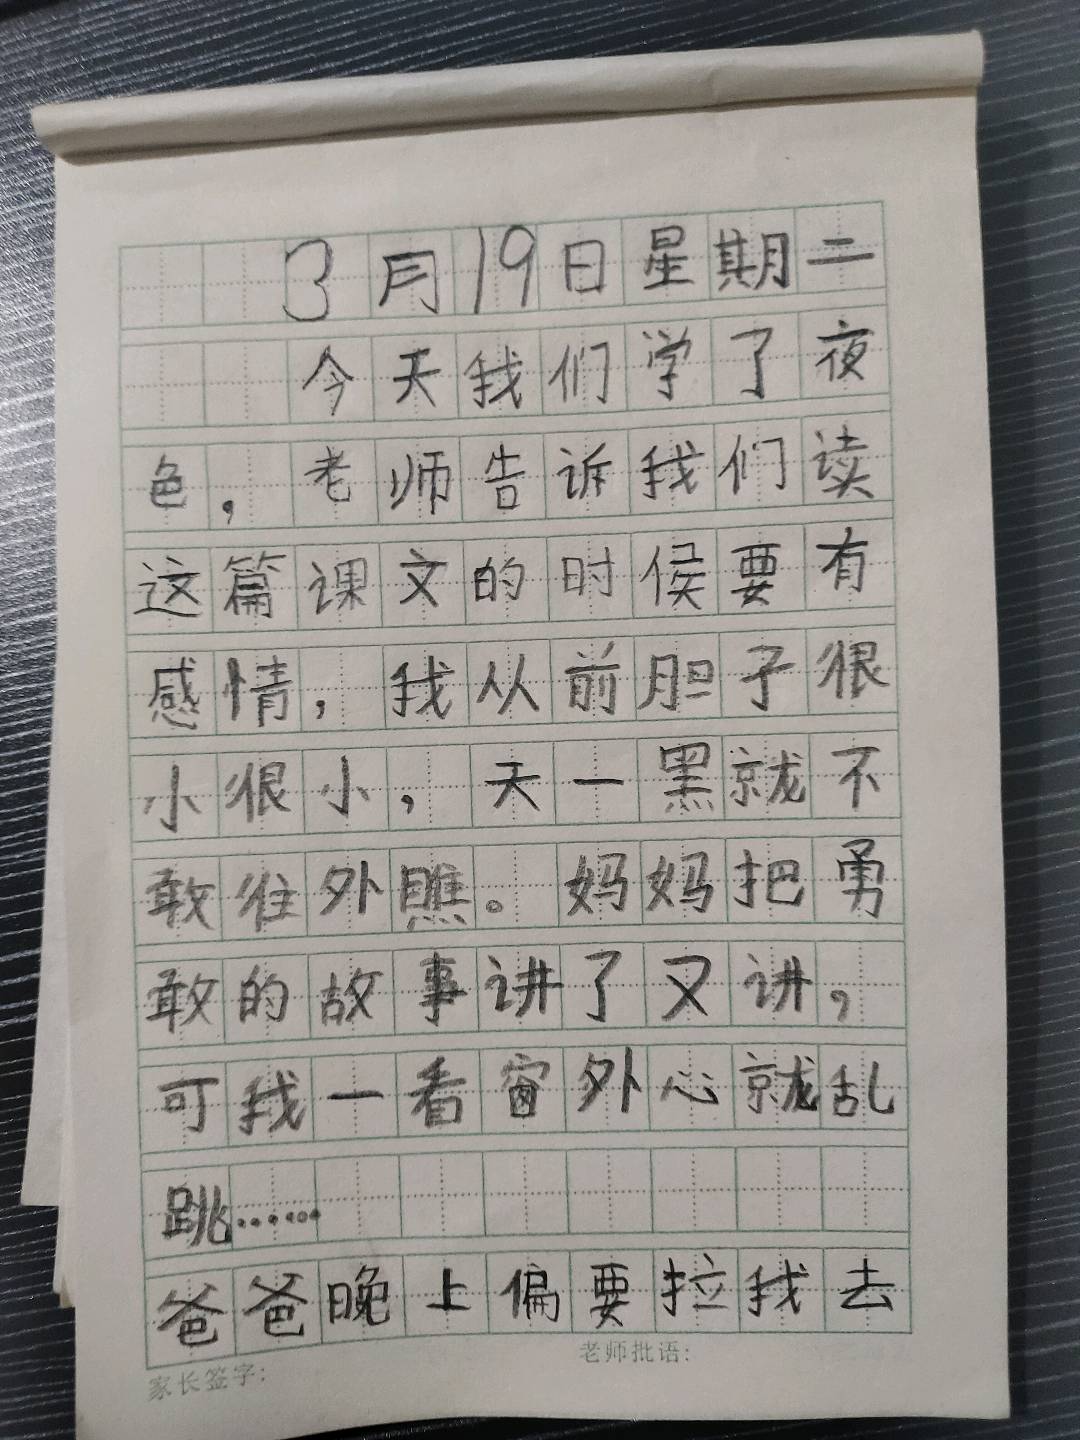 3月19日星期二
今天我们学了夜
色，老师告诉我们读
这篇课文的时侯要有
感情，我从前胆子很
小很小，天一黑就不
敢往外瞧。妈妈把勇
敢的故事讲了又讲，
可我一看窗外心就乱
跳……
爸爸晚上偏要拉我去
老师批语:
家长签字: